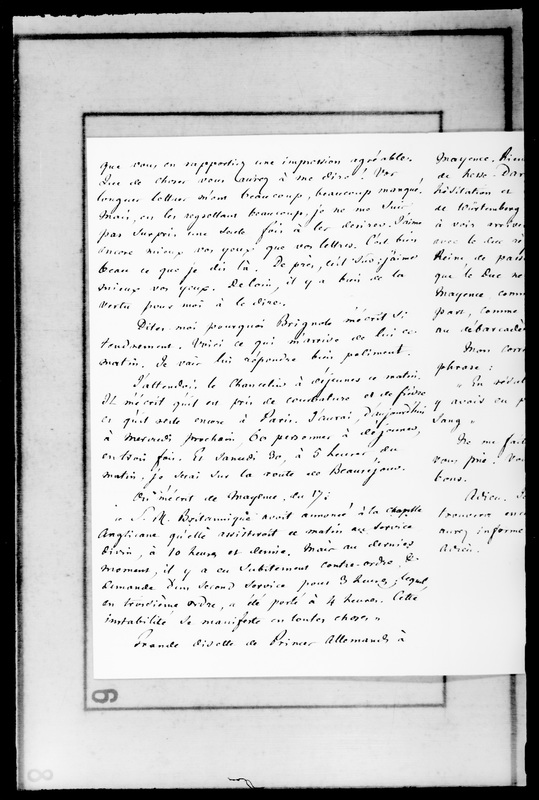 que vous en rapportiez une impression agréable.
Que de choses vous aurez à me dire ! Vos
longues lettres m'ont beaucoup, beaucoup manqué.
Mais, en les regrettant beaucoup, je ne me suis
pas surpris une seule fois à les désirer. J'aime
encore mieux vos yeux que vos lettres. C'est bien
beau ce que je dis là. De près, c'est sûr; j'aime
mieux vos yeux. De loin, il y a bien de la
vertu pour moi à le dire.
Dites-moi pourquoi Brignole m'écrit si
tendrement. Voici ce qui m'arrive de lui ce
matin. Je vais lui répondre bien poliment.
J'attendais le Chancelier à déjeuner ce matin.
Il m'écrit qu'il est pris de courbature et de fièvre
et qu'il reste encore à Paris. J'aurai, d'aujourd'hui
à mercredi prochain, 60 personnes à déjeuner,
en trois fois. Et samedi 30, à 5 heures du
matin, je serai sur la route de Beauséjour.
On m'écrit de Mayence, du 17 :
" S. M. Britannique avait annoncé à la chapelle
Anglicane qu'elle assisterait ce matin au service
divin, à 10 heures et demie. Mais au dernier
moment, il y a eu subitement contre-ordre. &
demande d'un second service pour 3 heures; lequel
en troisième ordre, a été porté à 4 heures. Cette
instabilité se manifeste en toutes choses "
Grande disette de Princes Allemands à
Mayence. Rien
de hesse. Dar
hésitation et
de Würtemberg
à voir arriver
avec le duc
Reine, de
que le Duc ne
Mayence, comm
part, comme
au débarcadè
Mon corre
phrase :
" En résul
y avais eu p
sang "
Ne me fait
vous prie ! Vo
bons.
Adieu.
trouverez enc
aurez informé
Adieu.
6
8